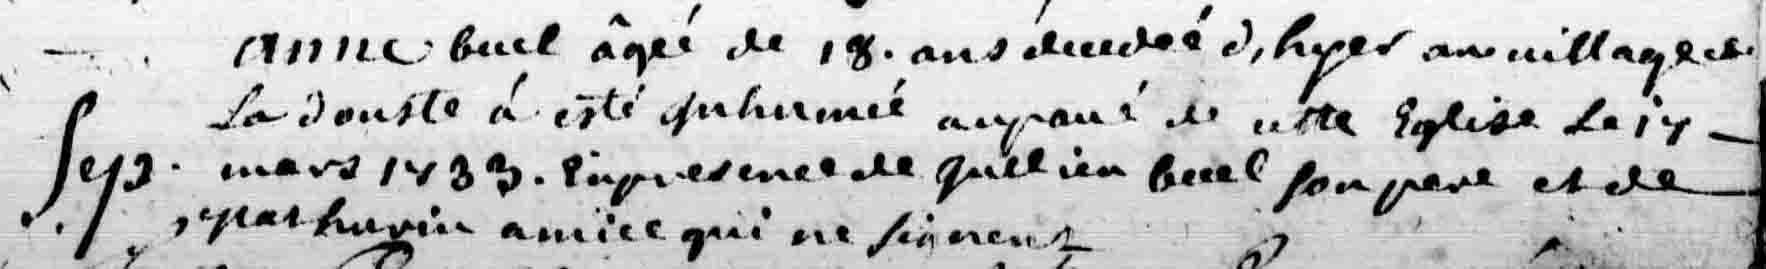 Anne buel âgée de 18. ans decedeé d'hyer au village de
La douste á esté Inhumeé au pavé de cette Eglise Le 17
Sep. mars 1733. En presence de Jullien buel son pere et de
Mathurin amice qui ne signent